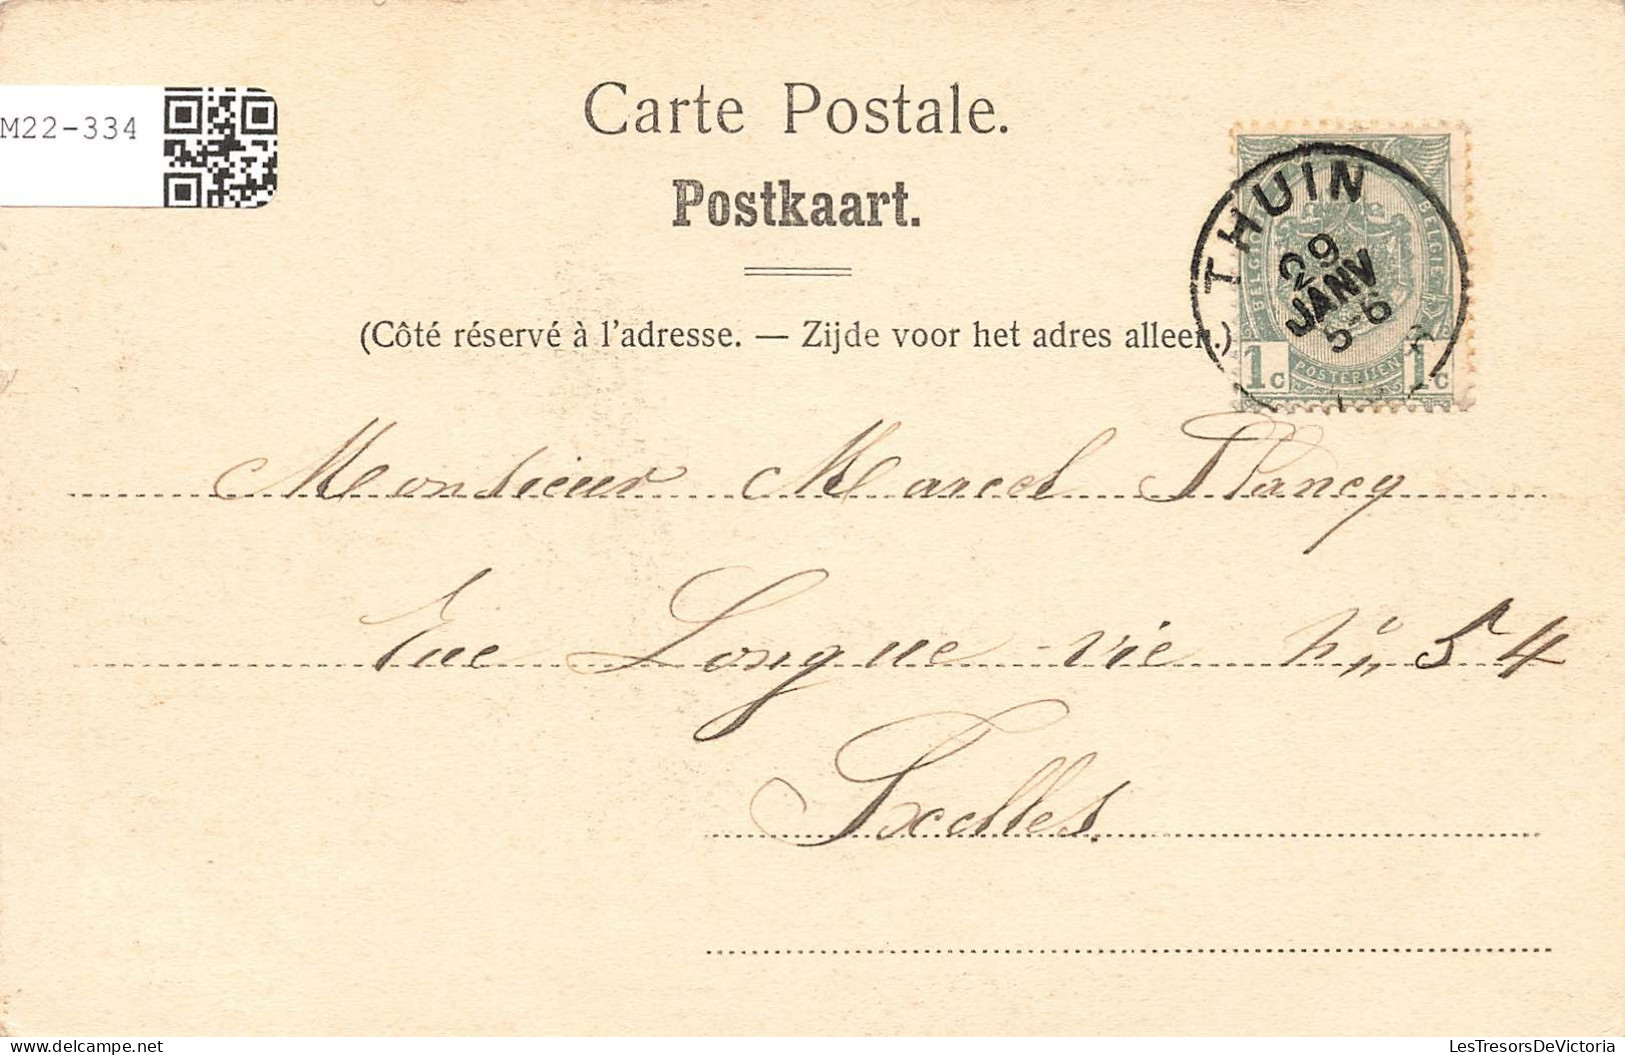 M22-334
Carte Postale.
Postkaart.
(Côté réservé à l'adresse. — Zijde voor het adres alleen.)
THUIN
29
JANV
5-6
BELGIQUE
BELGIE
POSTERIJEN
1c 1c
Monsieur Marcel Plancq
Rue Longue vie n° 54
Ixelles.
LesTresorsDeVictoria
https://www.delcampe.net